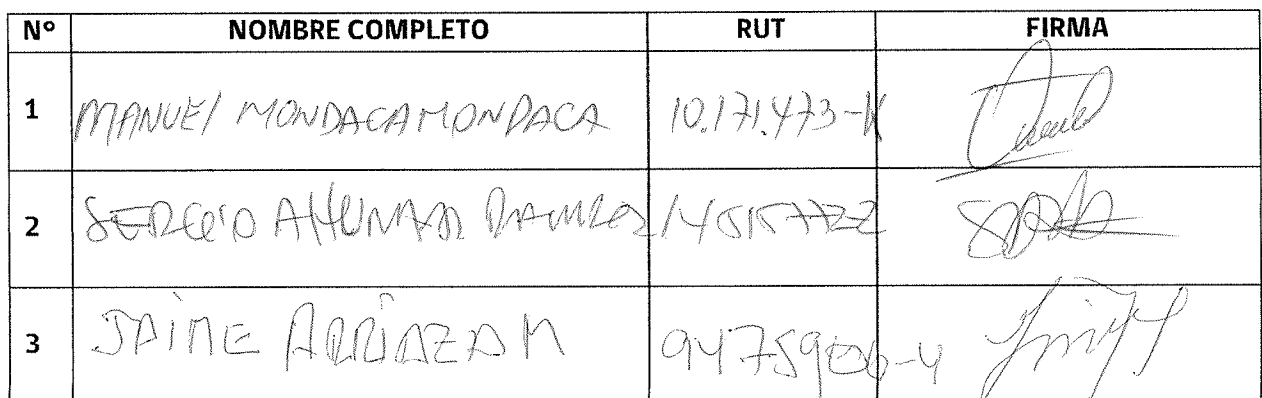 Nº NOMBRE COMPLETO RUT FIRMA
1 MANUEl MONDACA MONDACA 10.171.473-K
2 SERGIO AHUMADA RAMIREZ
3 JAIME ARRIAZA M